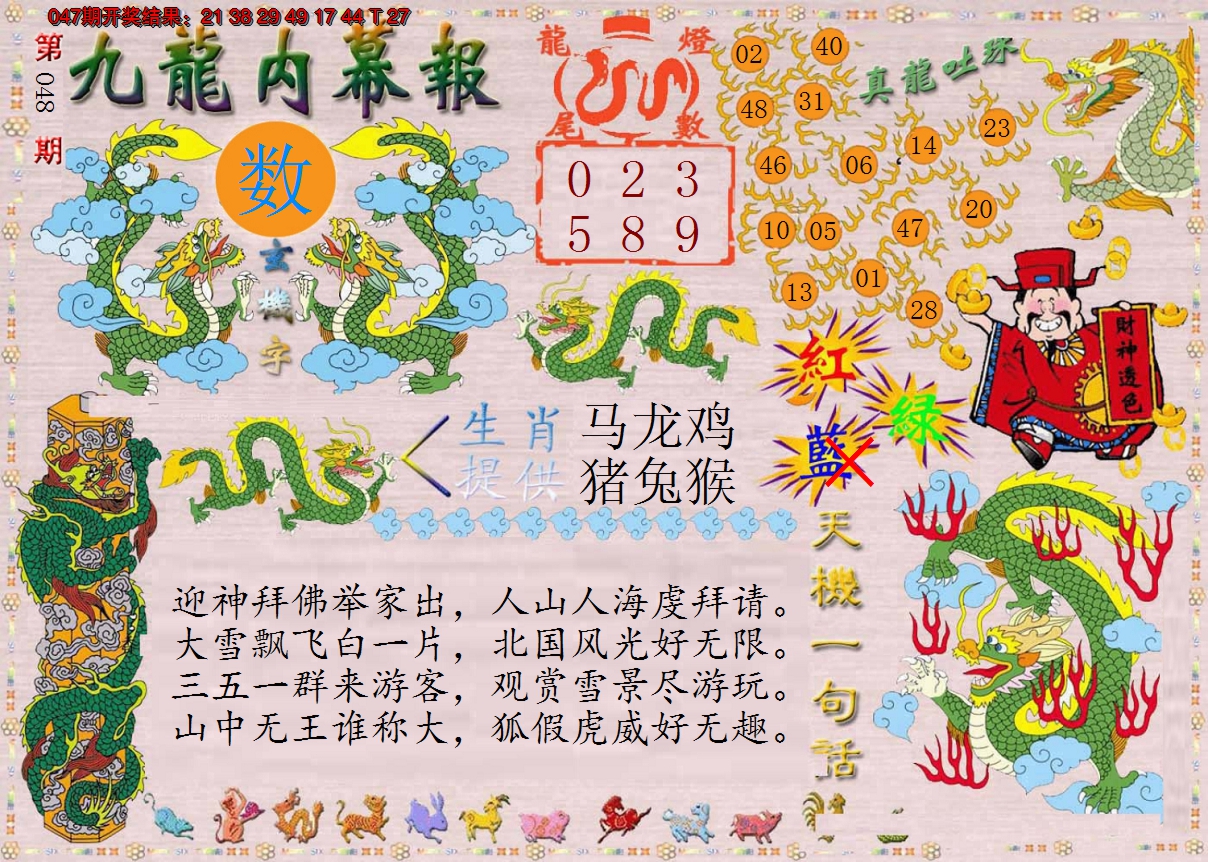 047期开奖结果：21 38 29 49 17 44 T 27
第048期
九龍内幕報
数
玄機字
龍燈尾數
0 2 3
5 8 9
真龍吐珠
02 40
48 31
46 06 14 23
10 05 47 20
13 01 28
財神透色
紅
綠
藍
生肖提供
马龙鸡
猪兔猴
天機一句話
迎神拜佛举家出，人山人海虔拜请。
大雪飘飞白一片，北国风光好无限。
三五一群来游客，观赏雪景尽游玩。
山中无王谁称大，狐假虎威好无趣。